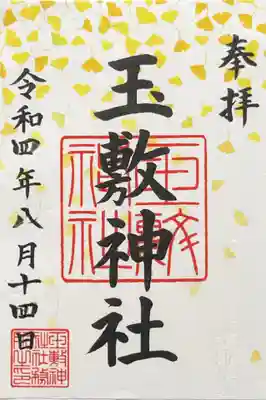 奉拝
玉敷神社
令和四年八月十四日
玉敷神社
玉敷神社社務之印